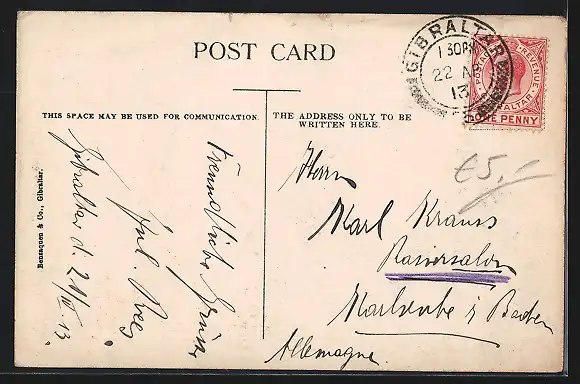 POST CARD
THIS SPACE MAY BE USED FOR COMMUNICATION.
THE ADDRESS ONLY TO BE
WRITTEN HERE.
GIBRALTAR
1 30PM
22 AP
13
POSTAGE REVENUE
GIBRALTAR
ONE PENNY
€5,-
Benzaquen & Co., Gibraltar.
Gibraltar d. 21/IV. 13.
Jul. Rees
Freundliche Grüsse
Herrn
Karl Krauss
Rasiersalon
Karlsruhe i/ Baden
Allemagne.